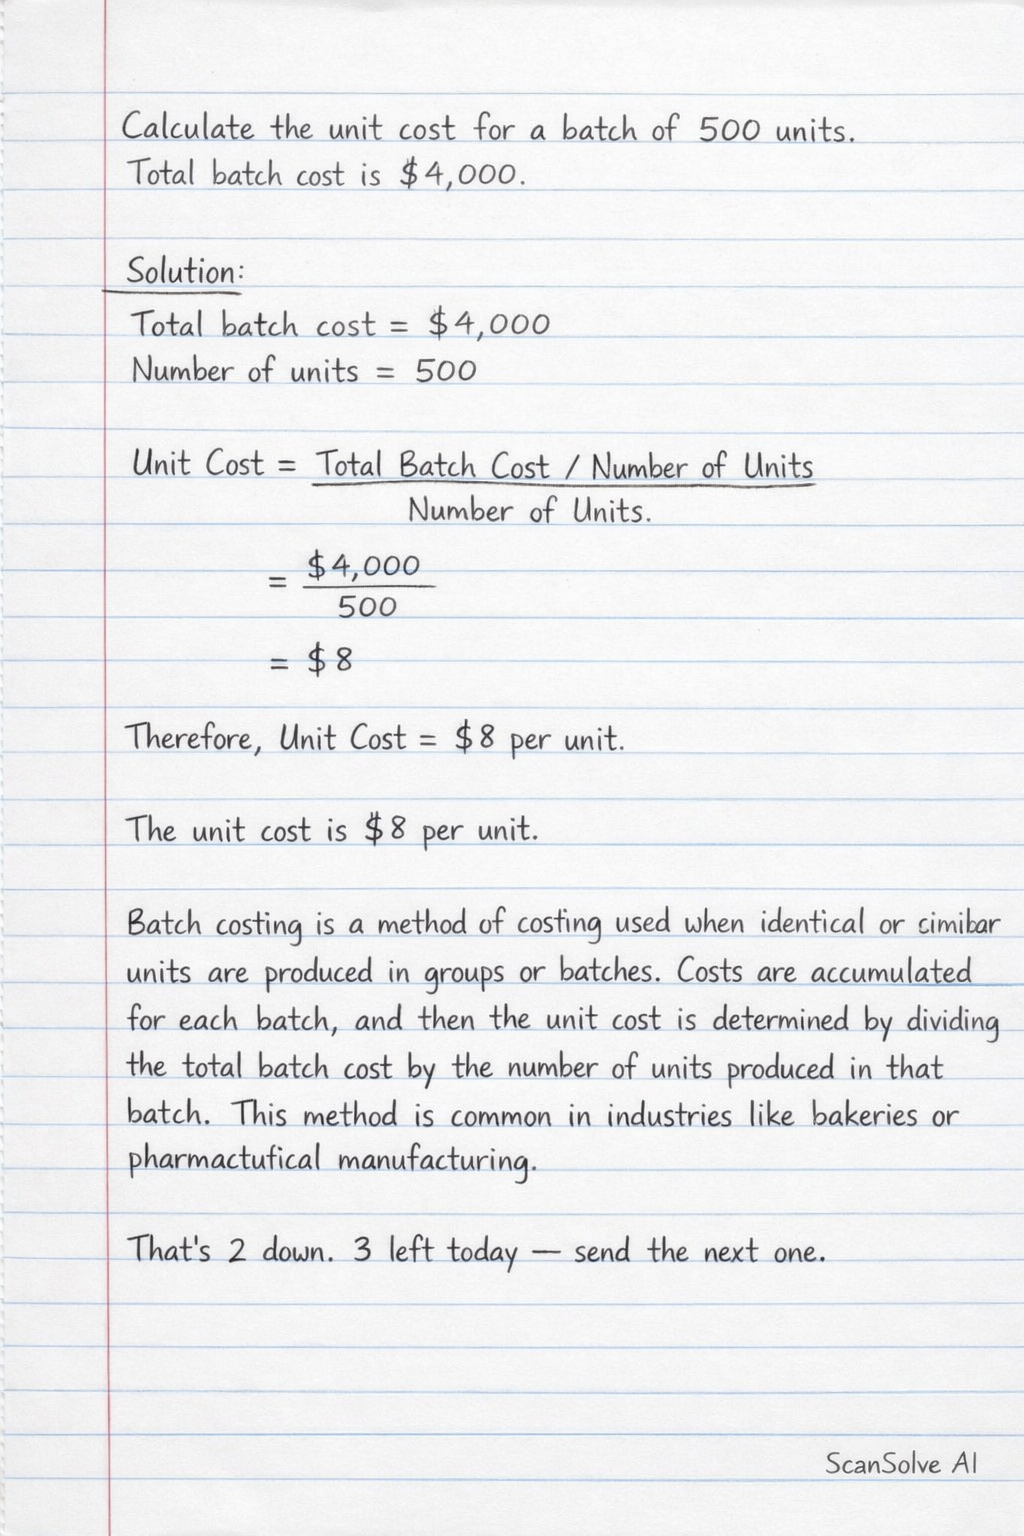 Calculate the unit cost for a batch of 500 units.
Total batch cost is $4,000.
Solution:
Total batch cost = $4,000
Number of units = 500
Unit Cost = Total Batch Cost / Number of Units
Number of Units.
= $4,000
500
= $8
Therefore, Unit Cost = $8 per unit.
The unit cost is $8 per unit.
Batch costing is a method of costing used when identical or cimibar
units are produced in groups or batches. Costs are accumulated
for each batch, and then the unit cost is determined by dividing
the total batch cost by the number of units produced in that
batch. This method is common in industries like bakeries or
pharmactufical manufacturing.
That's 2 down. 3 left today — send the next one.
ScanSolve AI